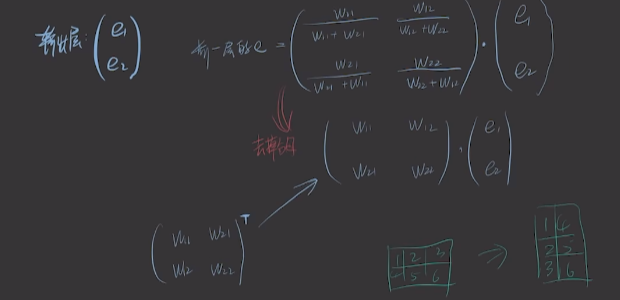 输出层: (e₁ e₂)
前一层的e = (w₁₁/(w₁₁+w₂₁) w₁₂/(w₁₂+w₂₂) w₂₁/(w₂₁+w₁₁) w₂₂/(w₂₂+w₁₂)) · (e₁ e₂)
去掉分母
(w₁₁ w₁₂ w₂₁ w₂₂) · (e₁ e₂)
(w₁₁ w₂₁ w₁₂ w₂₂)ᵀ
1 2 3
5 6
1 4
2 5
3 6